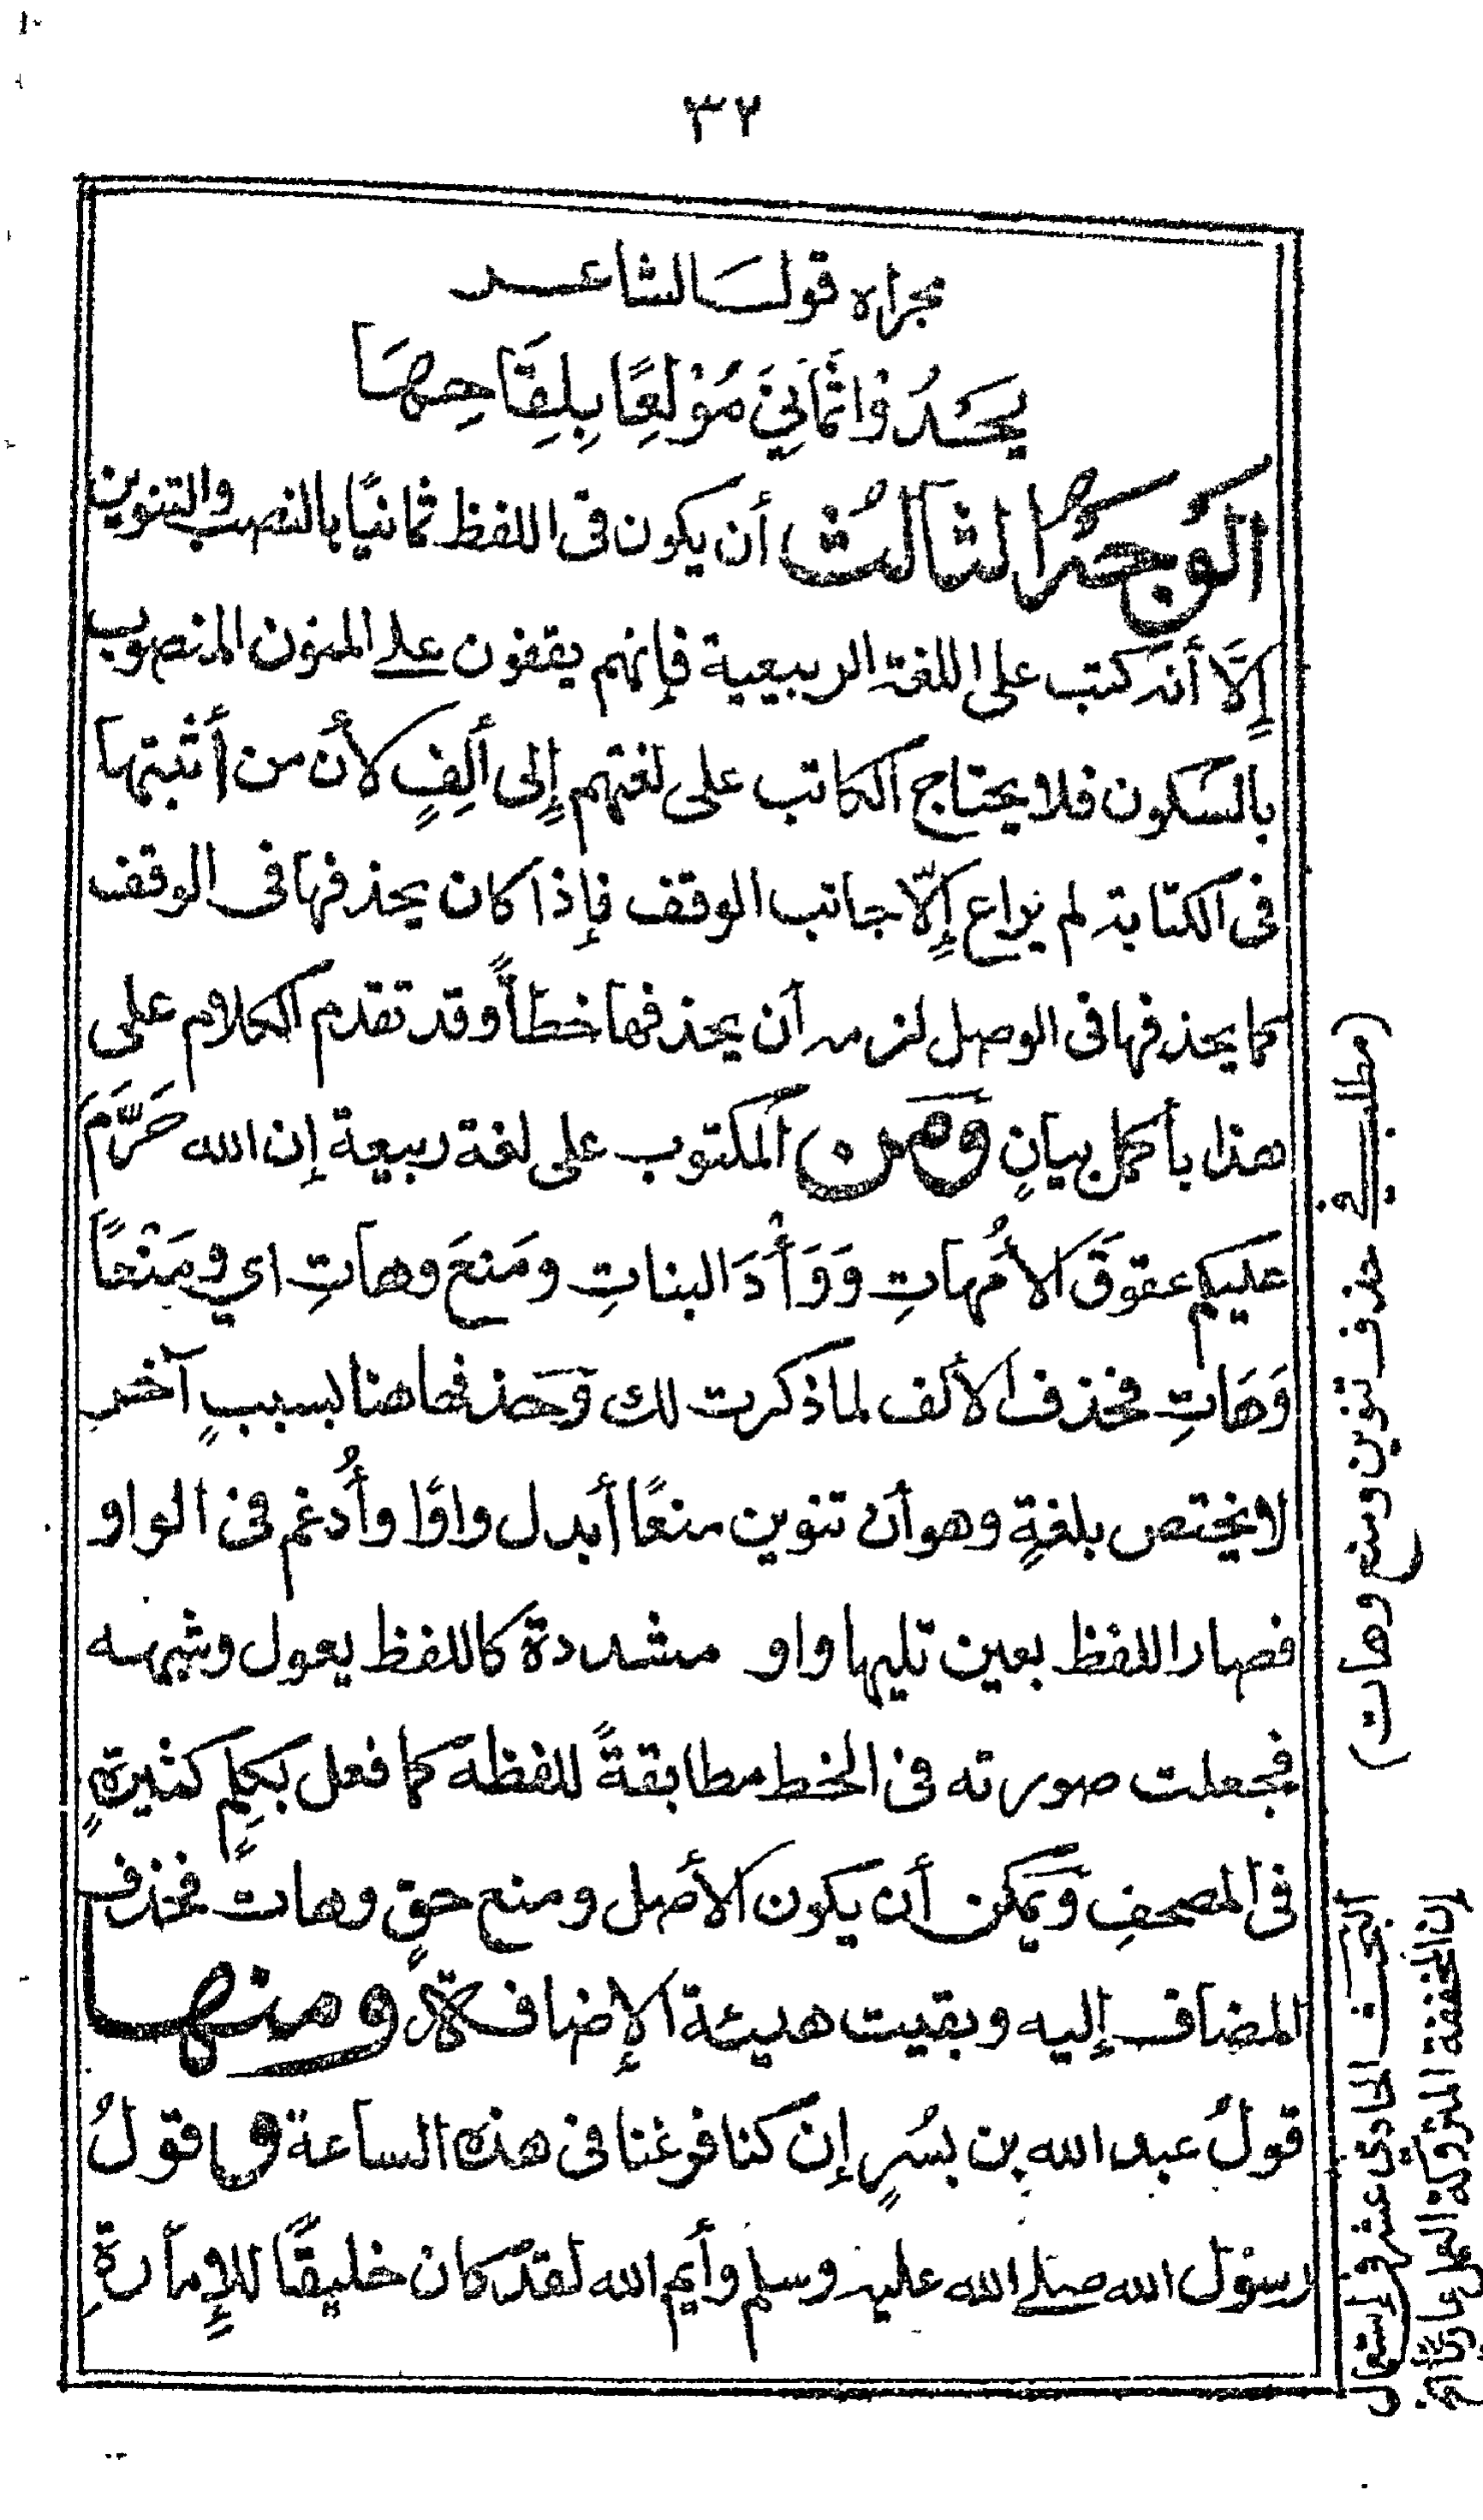 ٣٢
مجراه قول الشاعر
يَحْدُو ثَمَانِيَ مُوْلَعًا بِلِقَاحِهَا
الوَجهُ الثالثُ أن يكون فى اللفظ ثمانيًا بالنصب والتنوين
إِلَّا أنه كتب على اللغة الربيعية فإنهم يقفون على المنون المنصوب
بالسكون فلا يحتاج الكاتب على لغتهم إِلى ألِفٍ لأن من أثبتها
فى الكتابة لم يراع إِلّا جانب الوقف فإذا كان يحذفها فى الوقف
كما يحذفها فى الوصل لزمه أن يحذفها خطاً وقد تقدم الكلام على
هذا بأكمل بيانٍ وَمن المكتوب على لغة ربيعة إن الله حَرَّمَ
عليكم عقوقَ الأمُهاتِ وَوَأْدَ البناتِ ومَنعَ وهاتِ اي ومَنْعاً
وَهَاتِ فحذف الألف لما ذكرت لك وَحذفها هنا بسببٍ آخرِ
لا يختص بلغةٍ وهو أن تنوين منعًا أبدل واوًا وأُدغم فى الواو
فصار اللفظ بعين تليها واو مشددة كاللفظ يعول وشبهه
فجعلت صورته فى الخط مطابقةً للفظه كما فعل بكلِمٍ كثيرةٍ
فى المصحفِ وَيمكن أن يكون الأصل ومنع حقٍ وهات فحذف
المضاف إليه وبقيت هيئة الإضافة ومنها
قولُ عبد الله بن بسُرٍ إن كنا فرغنا فى هذه الساعة وقولُ
رسوْل الله صلى الله عليه وسلم وأيم الله لقد كان خليقًا للإِمارةِ
(مطلب في حذف تنوين ومنع وهات)
البحث الحادي عشر فى استعمال
إن المخففة المتروكة العمل